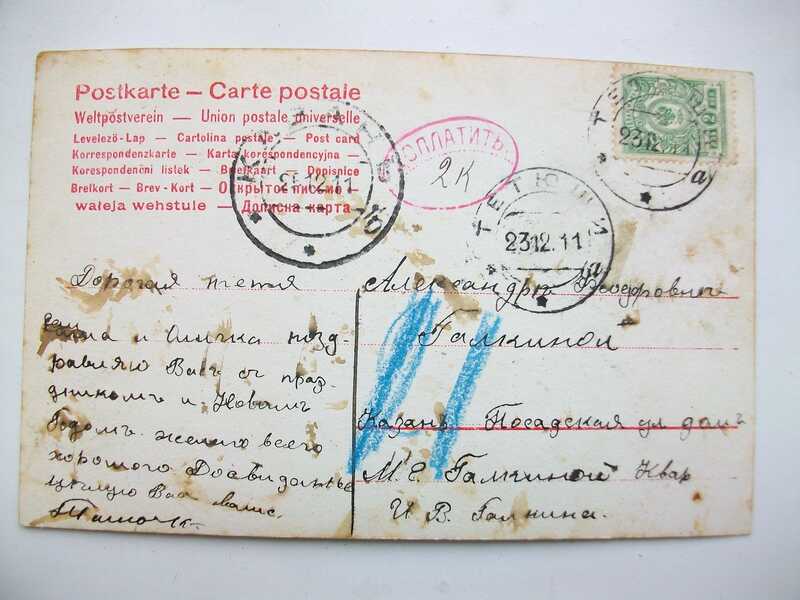 Postkarte — Carte postale
Weltpostverein — Union postale universelle
Levelező-Lap — Cartolina postale — Post card
Korrespondenzkarte — Karta korespondencyjna —
Korespondenční lístek — Briefkaart — Dopisnice
Brefkort — Brev-Kort — Открытое письмо —
wałeja wehstule — Дописна карта
КАЗАНЬ
25.12.11
ДОПЛАТИТЬ
2К
23.12.11
а
ТЕТЮШИ
23.12.11
а
Дорогая тетя
и Симочка позд
равляю Васъ съ праз
дникомъ и Новымъ
Годомъ желаю всего
хорошого Досвиданье
целую Вас
Александрѣ Феодоровнѣ
Галкиной
Казань Посадская ул домъ
М. Е. Галкиной Квар
И. В. Галкина.